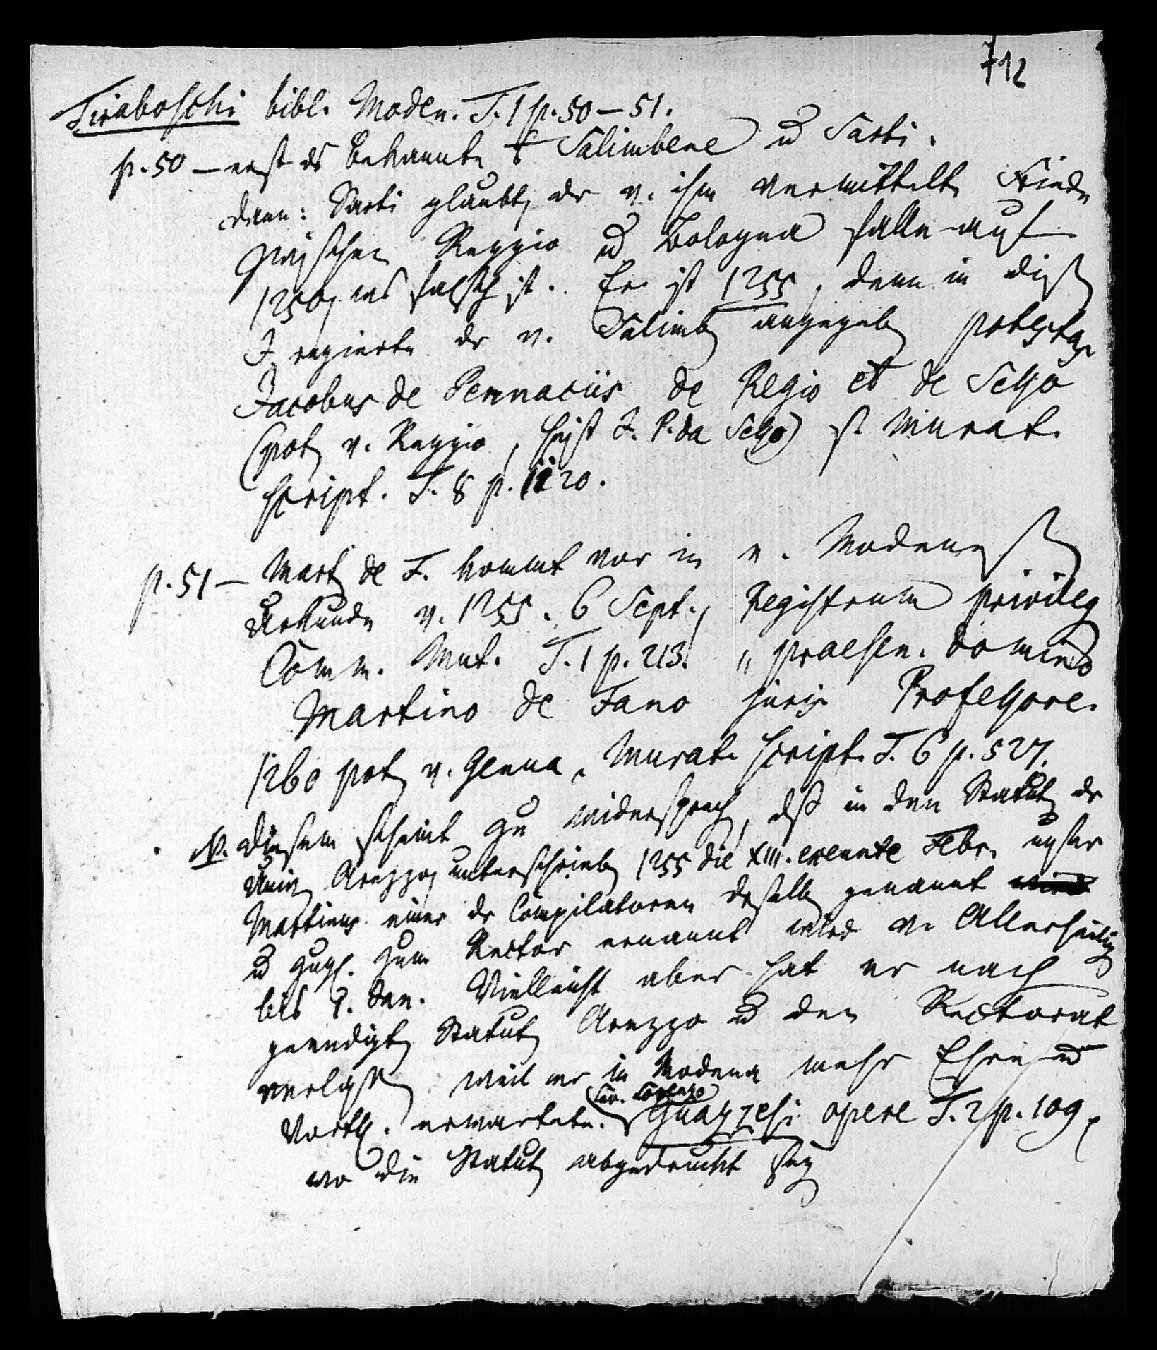 712
Tiraboschi bibl. Moden. T. 1 p. 50–51.
p. 50 – erst ds Bekannte Salimbene u Sarti.
dann: Sarti glaubt, der v. ihm vermittelte Friede
zwischen Reggio u Bologna falle auf
1250, was falsch ist. Er ist 1255, denn in dies
J. regierte der v. Salimb angegeb potestas
Jacobus de Pennaciis de Regio et de Sesso
(pot v. Reggio, heist J. P. da Sesso) s. Murat.
script. T. 8 p. 1120.
p. 51 – Mart de F. kommt vor in e. Modenes
Urkunde v. 1255. 6 Sept., Registrum privileg
Comm. Mut. T. 1 p. 213. „ praesen. domino
Martino de Fano juris Professore.
1260 pot v. Genua, Murat. script. T. 6 p. 527.
N. diesem scheint zu widersprech, dß in den Statut der
Univ Arezzo, unterschrieb 1255 die XIII. exeunte Febr. unser
Martinus einer der Compilatoren deselb genannt
u zugl. zum Rector ernannt wird v. Allerheilig
bis 1. Jan. Vielleicht aber hat er nach
geendigt Statut Arezzo u den Rectorat
verlass, weil er in Modena mehr Ehre u
Vorth. erwartete. (Cav. Lorenzo) Guazzesi opere T. 2 p. 109,
wo die Statut abgedruckt sey